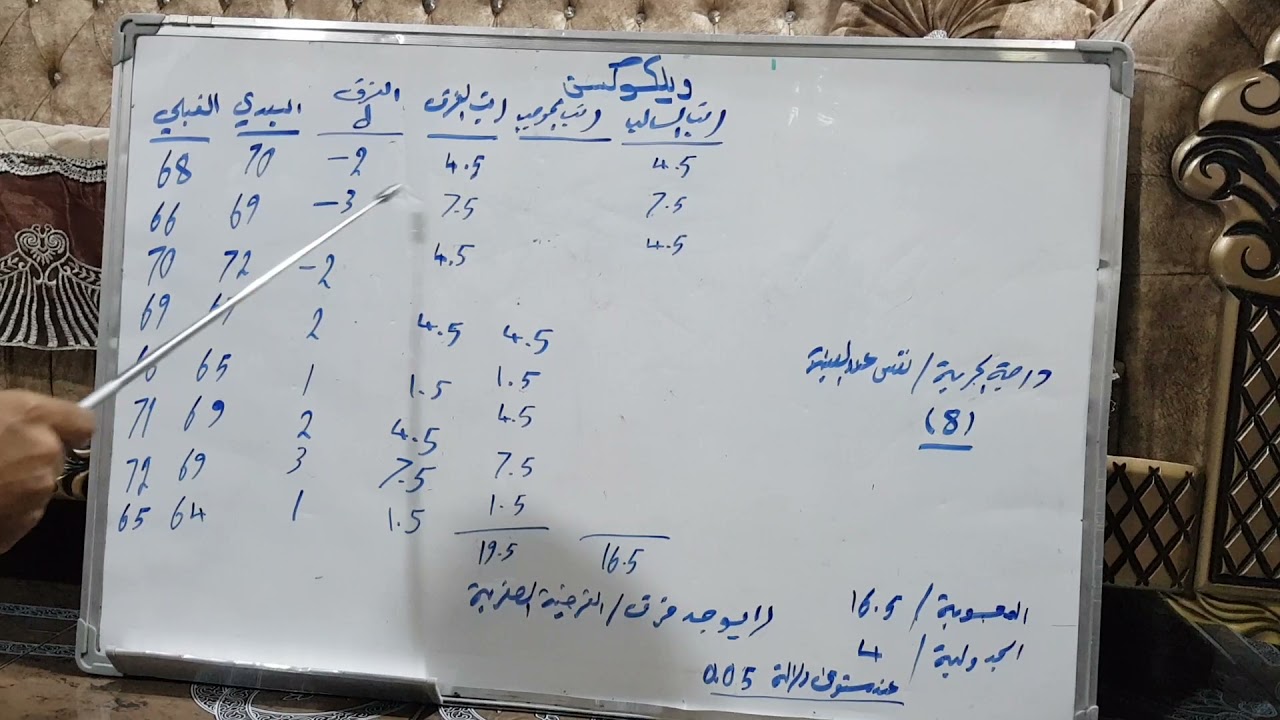 ويلكوكسن
القبلي البعدي الفرق رتب الفرق رتب الموجب رتب السالب
d
68 70 -2 4.5 4.5
66 69 -3 7.5 7.5
70 72 -2 4.5 4.5
69 2 4.5 4.5
65 1 1.5 1.5
71 69 2 4.5 4.5
72 69 3 7.5 7.5
65 64 1 1.5 1.5
19.5 16.5
درجة الحرية / نفس عدد العينة
(8)
المحسوبة / 16.5
الجدولية / 4
عند مستوى دلالة 0.05
لا يوجد فرق / الفرضية الصفرية